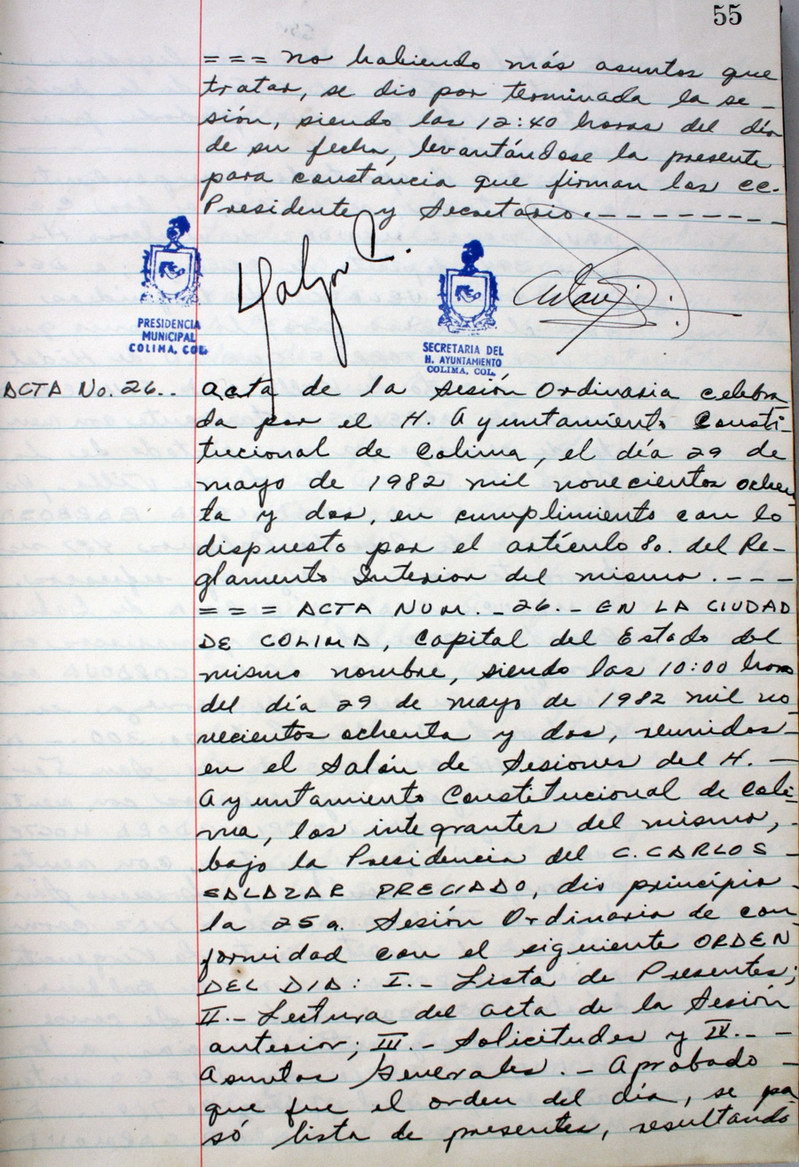 55
= = = no habiendo más asuntos que
tratar, se dio por terminada la se-
sión, siendo las 12:40 horas del día
de su fecha, levantándose la presente
para constancia que firman los CC.
Presidente y Secretario. - - - - - - - -
PRESIDENCIA
MUNICIPAL
COLIMA, COL.
SECRETARIA DEL
H. AYUNTAMIENTO
COLIMA, COL.
ACTA No. 26.. Acta de la Sesión Ordinaria celebra
da por el H. Ayuntamiento Consti-
tucional de Colima, el día 29 de
mayo de 1982 mil novecientos ochen
ta y dos, en cumplimiento con lo
dispuesto por el artículo 8o. del Re-
glamento Interior del mismo. - - -
= = = ACTA NUM. - 26. - EN LA CIUDAD
DE COLIMA, Capital del Estado del
mismo nombre, siendo las 10:00 horas
del día 29 de mayo de 1982 mil no-
vecientos ochenta y dos, reunidos -
en el Salón de Sesiones del H. -
Ayuntamiento Constitucional de Coli-
ma, los integrantes del mismo, -
bajo la Presidencia del C. CARLOS -
SALAZAR PRECIADO, dio principio -
la 25a. Sesión Ordinaria de con-
formidad con el siguiente ORDEN
DEL DIA: I. - Lista de Presentes;
II. - Lectura del acta de la Sesión
anterior; III. - Solicitudes y IV. - -
Asuntos Generales. - Aprobado -
que fue el orden del día, se pa
só lista de presentes, resultando